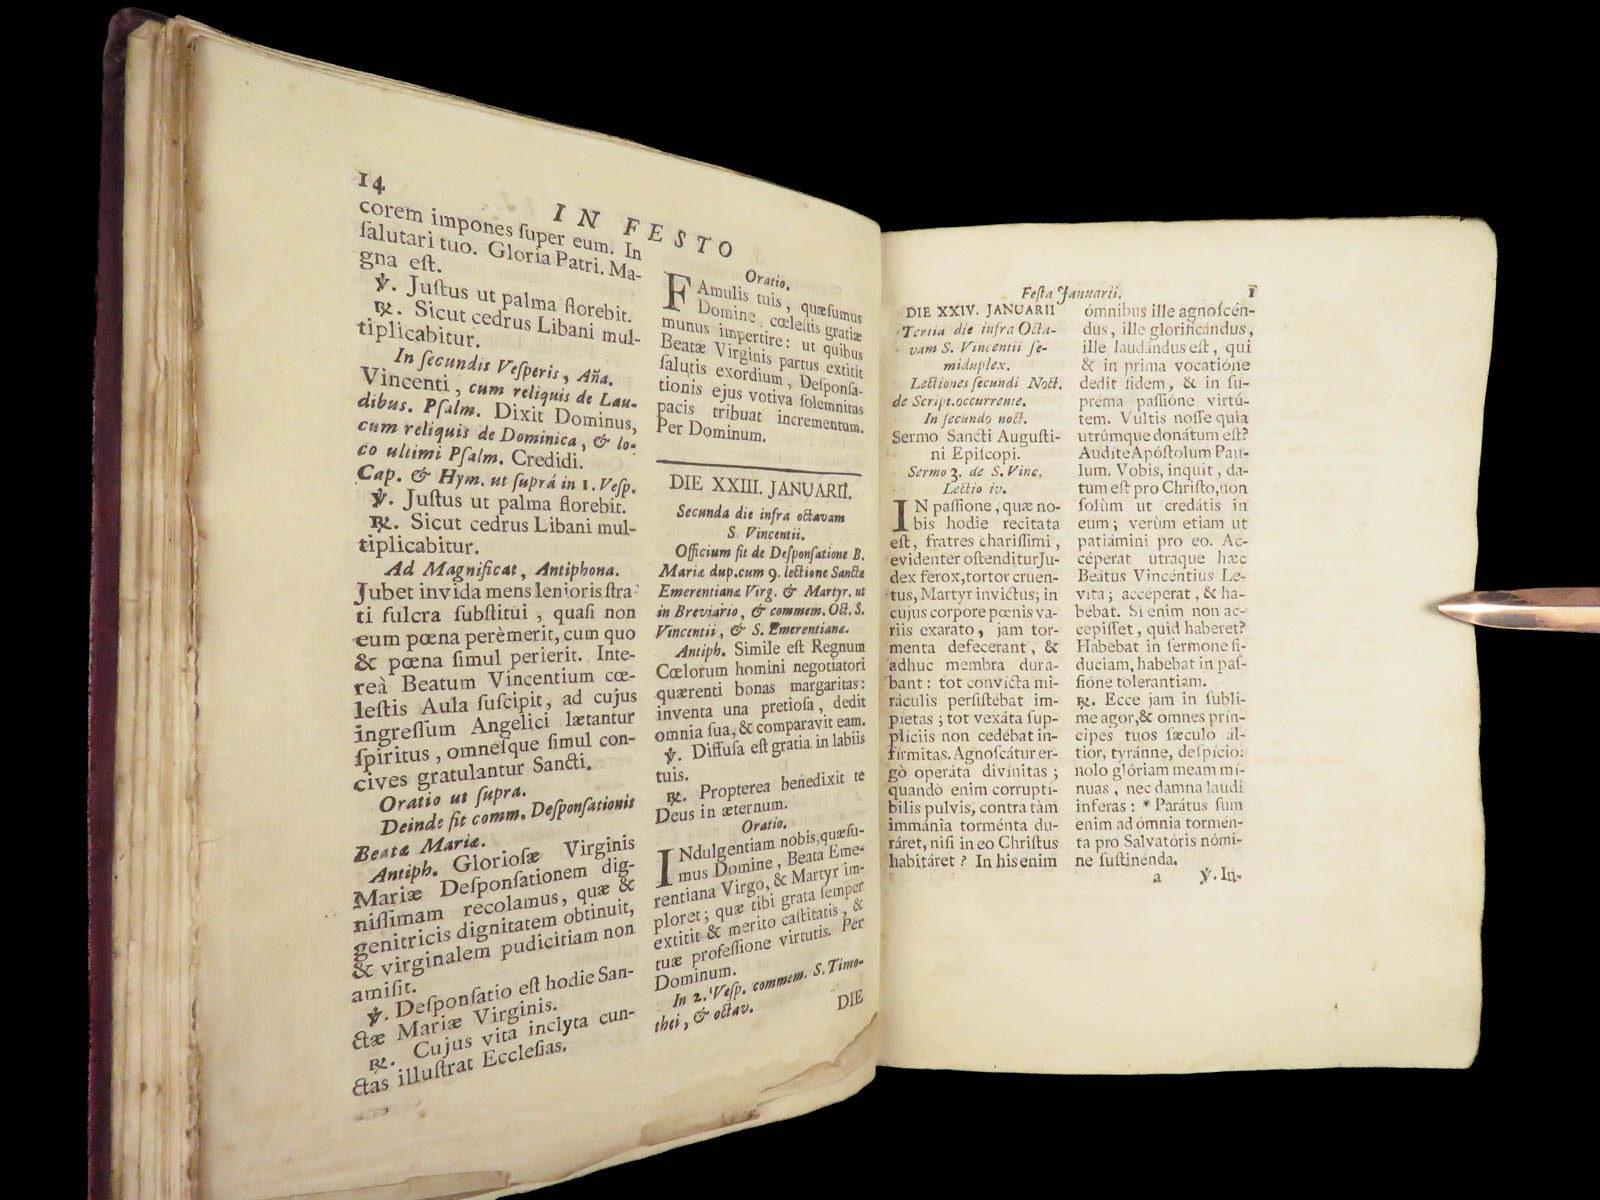 14
IN FESTO
corem impones ſuper eum. In
ſalutari tuo. Gloria Patri. Ma-
gna eſt.
℣. Juſtus ut palma florebit.
℟. Sicut cedrus Libani mul-
tiplicabitur.
In ſecundis Veſperis, Aña.
Vincenti, cum reliquis de Lau-
dibus. Pſalm. Dixit Dominus,
cum reliquis de Dominica, & lo-
co ultimi Pſalm. Credidi.
Cap. & Hym. ut ſuprá in 1. Veſp.
℣. Juſtus ut palma florebit.
℟. Sicut cedrus Libani mul-
tiplicabitur.
Ad Magnificat, Antiphona.
Jubet invida mens lenioris ſtra-
ti fulcra ſubſtitui, quaſi non
eum pœna perèmerit, cum quo
& pœna ſimul perierit. Inte-
reà Beatum Vincentium cœ-
leſtis Aula ſuſcipit, ad cujus
ingreſſum Angelici lætantur
ſpiritus, omneſque ſimul con-
cives gratulantur Sancti.
Oratio ut ſupra.
Deinde fit comm. Deſponſationis
Beatæ Mariæ.
Antiph. Glorioſæ Virginis
Mariæ Deſponſationem dig-
niſſimam recolamus, quæ &
genitricis dignitatem obtinuit,
& virginalem pudicitiam non
amiſit.
℣. Deſponſatio eſt hodie San-
ctæ Mariæ Virginis.
℟. Cujus vita inclyta cun-
ctas illuſtrat Eccleſias.
Oratio.
FAmulis tuis, quæſumus
Domine, cœleſtis gratiæ
munus impertire: ut quibus
Beatæ Virginis partus extitit
ſalutis exordium, Deſponſa-
tionis ejus votiva ſolemnitas
pacis tribuat incrementum.
Per Dominum.
DIE XXIII. JANUARII.
Secunda die infra octavam
S. Vincentii.
Officium fit de Deſponſatione B.
Mariæ dup. cum 9. lectione Sanctæ
Emerentianæ Virg. & Martyr. ut
in Breviario, & commem. Oct. S.
Vincentii, & S. Emerentianæ.
Antiph. Simile eſt Regnum
Cœlorum homini negotiatori
quærenti bonas margaritas:
inventa una pretioſa, dedit
omnia ſua, & comparavit eam.
℣. Diffuſa eſt gratia in labiis
tuis.
℟. Propterea benedixit te
Deus in æternum.
Oratio.
INdulgentiam nobis, quæſu-
mus Domine, Beata Eme-
rentiana Virgo, & Martyr im-
ploret; quæ tibi grata ſemper
extitit & merito caſtitatis, &
tuæ profeſſione virtutis. Per
Dominum.
In 2. Veſp. commem. S. Timo-
thei, & octav.
DIE
Feſta Januarii.
1
DIE XXIV. JANUARII
Tertia die infra Octa-
vam S. Vincentii ſe-
miduplex.
Lectiones ſecundi Noct.
de Script. occurrente.
In ſecundo noct.
Sermo Sancti Auguſti-
ni Epiſcopi.
Sermo 3. de S. Vinc.
Lectio iv.
IN paſſione, quæ no-
bis hodie recitata
eſt, fratres chariſſimi,
evidenter oſtenditur Ju-
dex ferox, tortor cruen-
tus, Martyr invictus; in
cujus corpore pœnis va-
riis exarato, jam tor-
menta defecerant, &
adhuc membra dura-
bant: tot convícta mi-
ráculis perſiſtébat im-
pietas; tot vexáta ſup-
pliciis non cedébat in-
fírmitas. Agnoſcátur er-
gò operáta divínitas;
quandò enim corrupti-
bilis pulvis, contra tàm
immánia torménta du-
ráret, niſi in eo Chriſtus
habitáret? In his enim
ómnibus ille agnoſcén-
dus, ille glorificándus,
ille laudándus eſt, qui
& in prima vocatióne
dedit fidem, & in ſu-
préma paſſióne virtú-
tem. Vultis noſſe quia
utrúmque donátum eſt?
Audite Apóſtolum Pau-
lum. Vobis, inquit, da-
tum eſt pro Chriſto, non
ſolùm ut credátis in
eum; verùm etiam ut
patiámini pro eo. Ac-
céperat utraque hæc
Beátus Vincéntius Le-
víta; accéperat, & ha-
bébat. Si enim non ac-
cepiſſet, quid haberet?
Habébat in ſermone fi-
duciam, habebat in paſ-
ſióne tolerantiam.
℟. Ecce jam in ſubli-
me agor, & omnes prín-
cipes tuos ſæculo ál-
tior, tyránne, deſpício:
nolo glóriam meam mí-
nuas, nec damna laudi
inferas: * Parátus ſum
enim ad ómnia tormén-
ta pro Salvatóris nómi-
ne ſuſtinénda.
a
℣. In-